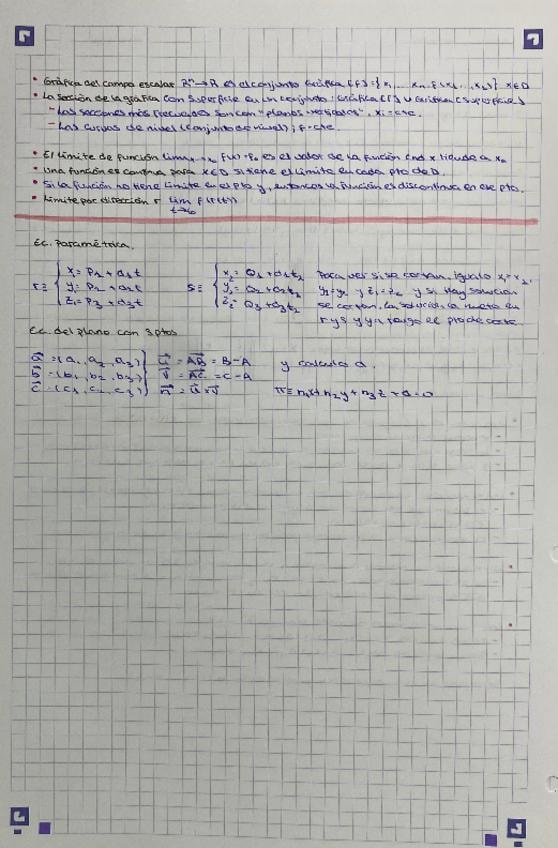 • Gráfica del campo escalar Rⁿ→R es el conjunto Gráfica(f)={x₁ ... xₙ, f(x₁...,x₂)} x∈D
• La sección de la gráfica con superficie es un conjunto: Gráfica(f) ∪ Gráfica(superficie)
- Las secciones más frecuentes son con "planos verticales", xᵢ=cte.
- Las curvas de nivel (conjunto de nivel); f=cte.
• El límite de función lim x→x₀ f(x)=f₀ es el valor de la función cnd x tiende a x₀
• Una función es continua para x∈D si tiene el límite en cada pto de D.
• Si la función no tiene límite en el pto y, entonces la función es discontinua en ese pto.
• Límite por dirección r lim f(r(t))
t→t₀
Ec. Paramétrica.
r≡ { x₁= P₁ + d₁t s≡ { x₂= Q₁ + d₁t₂ Para ver si se cortan, igualo x₁=x₂,
y₁= P₂ + d₂t y₂= Q₂ + d₂t₂ y₁=y₂ y z₁=z₂ y si hay solución
z₁= P₃ + d₃t z₂= Q₃ + d₃t₂ se cortan. La solución la meto en
r y s y ya tengo el pto de corte.
Ec. del plano con 3 ptos
a⃗ =(a₁, a₂, a₃) } u⃗ = AB⃗ = B-A y calculo d.
b⃗ =(b₁, b₂, b₃) v⃗ = AC⃗ = C-A
c⃗ =(c₁, c₂, c₃) n⃗ = u⃗ x v⃗ π≡ n₁x+n₂y+n₃z+d=0